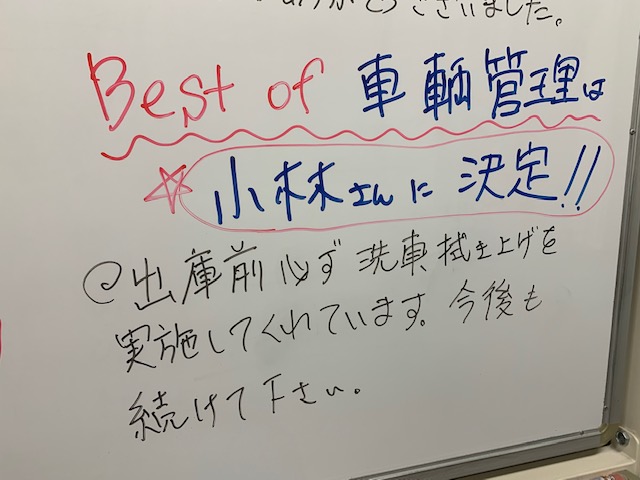 ありがとうございました。
Best of 車輌管理は
☆小林さんに 決定!!
@出庫前必ず洗車拭き上げを
実施してくれています。今後も
続けて下さい。